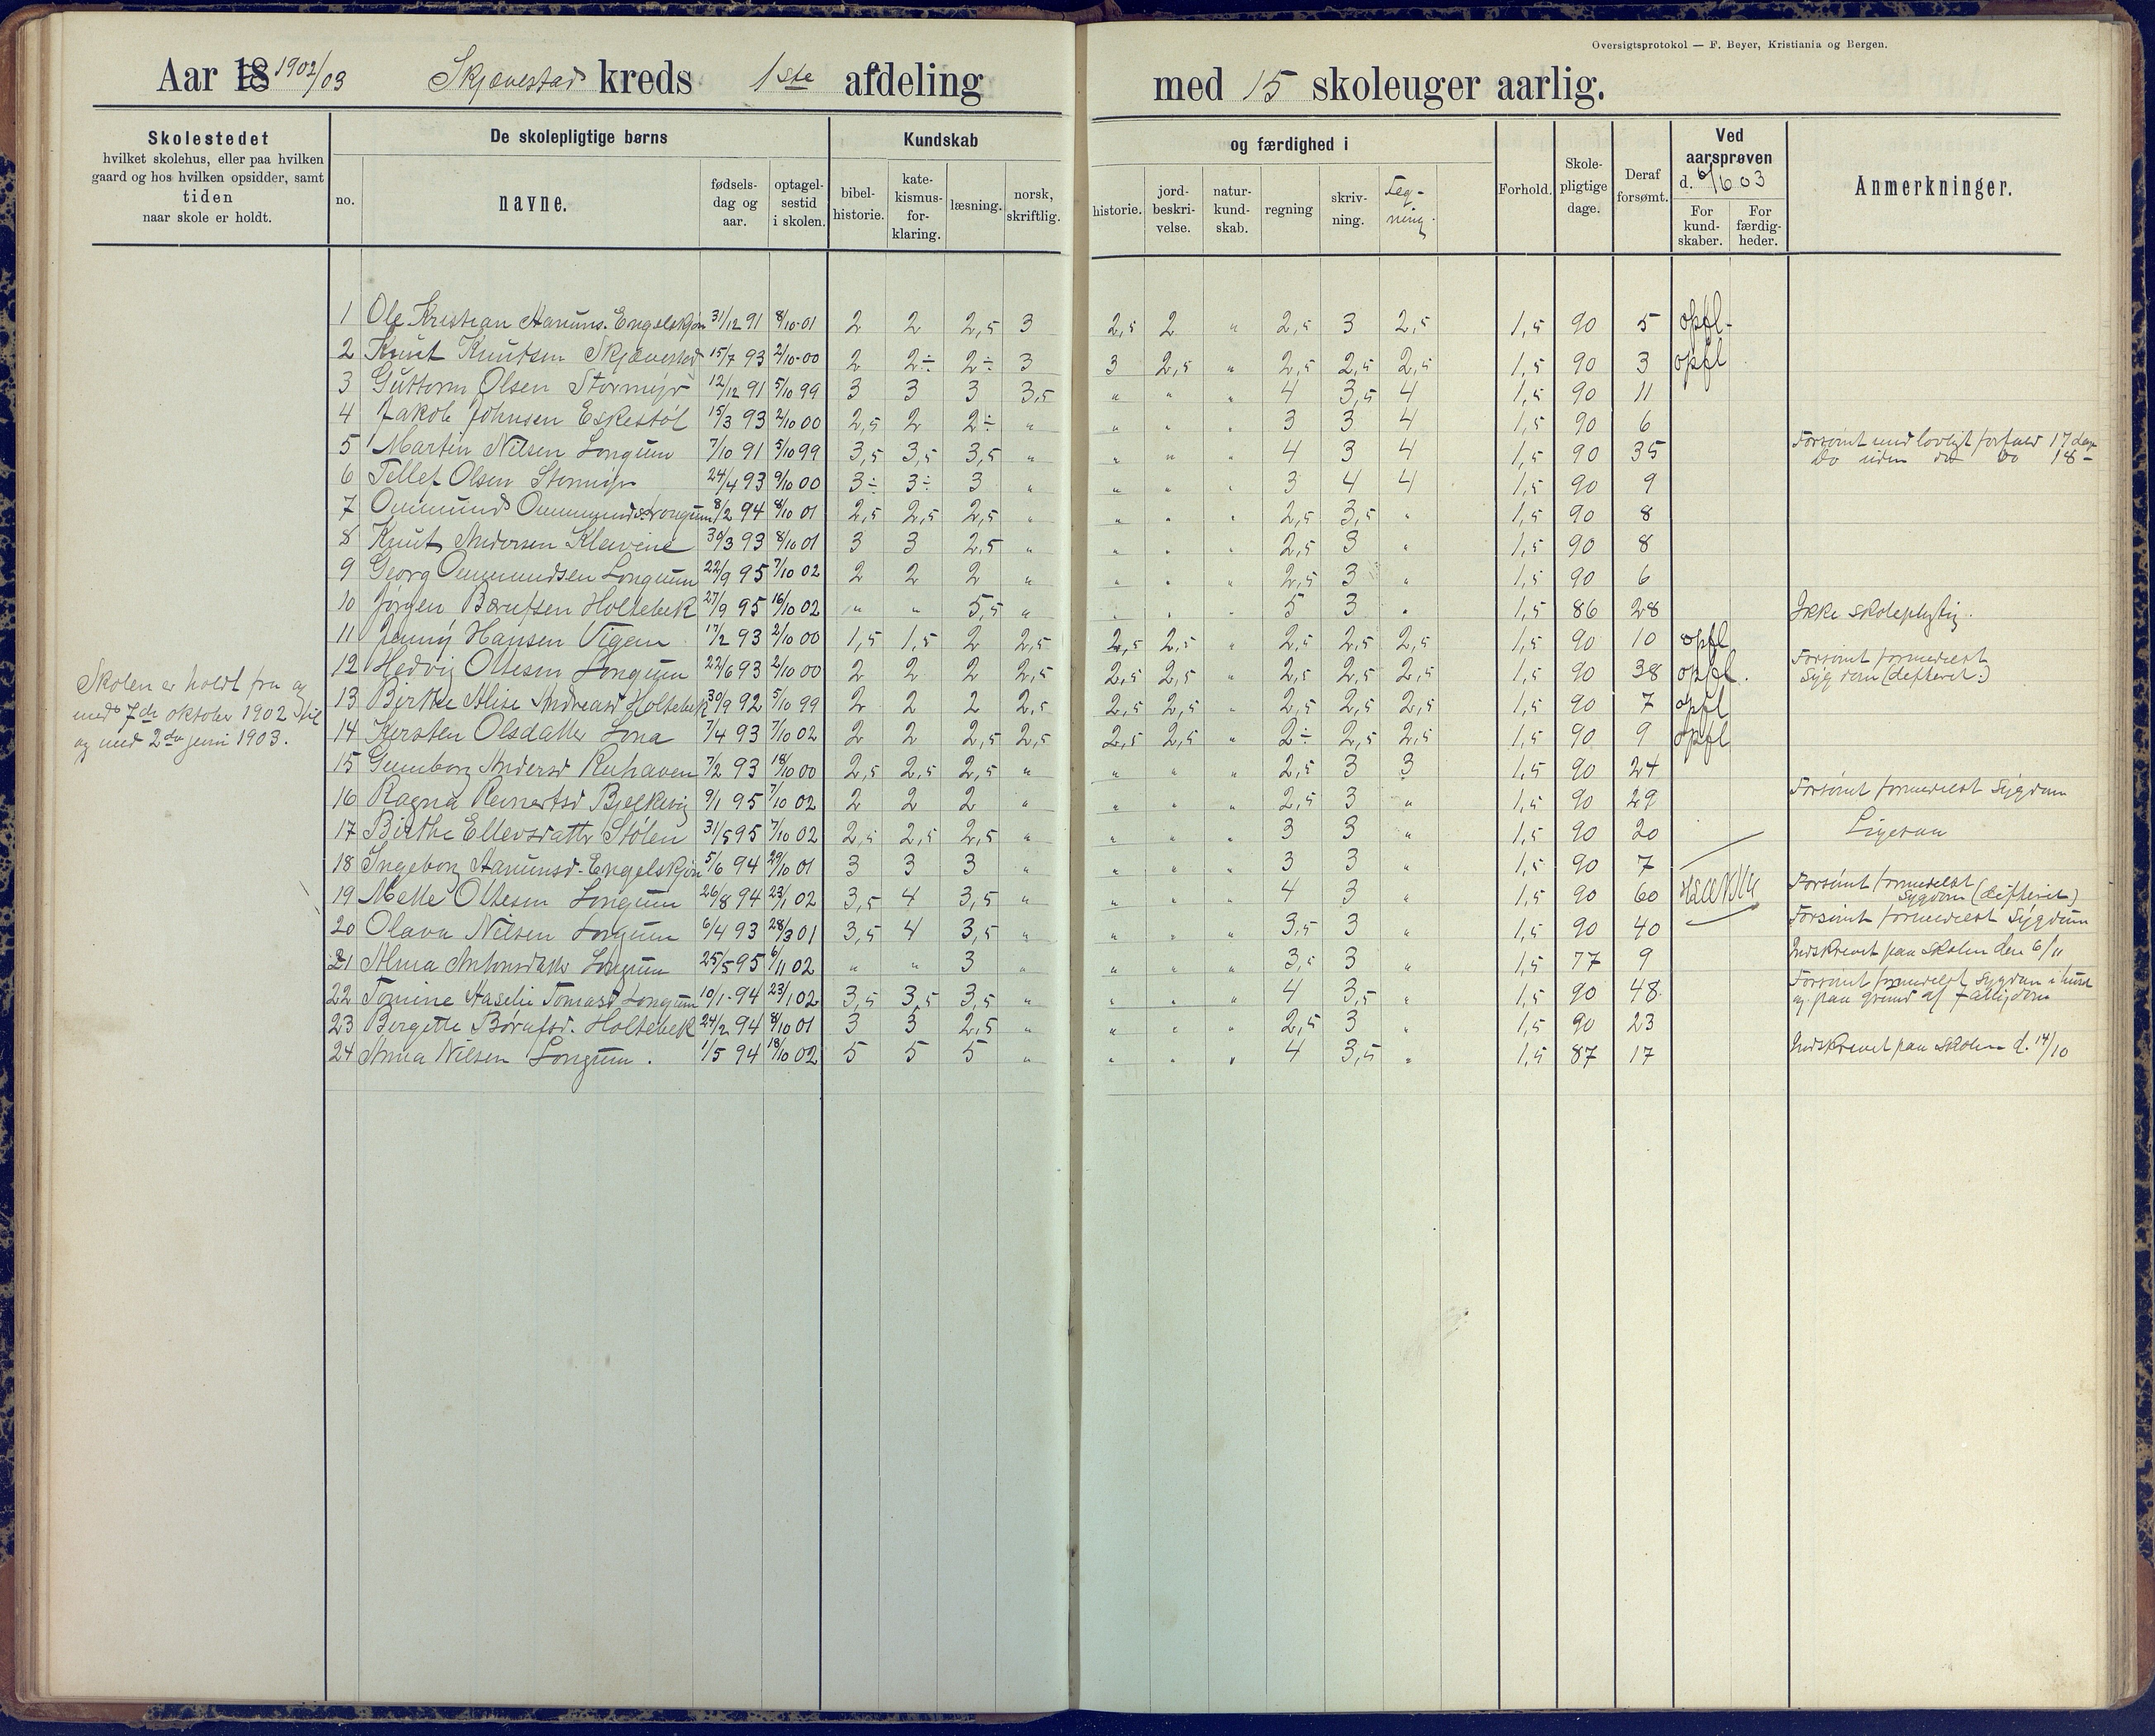 Oversigtsprotokol — F. Beyer, Kristiania og Bergen.
Aar 18 1902/03 Skjævestad kreds 1ste afdeling med 15 skoleuger aarlig.
Skolestedet hvilket skolehus, eller paa hvilken gaard og hos hvilken opsidder, samt tiden naar skole er holdt.
De skolepligtige børns
no. navne. fødsels-dag og aar. optagel-sestid i skolen.
Kundskab og færdighed i
bibel-historie. kate-kismus-for-klaring. læsning. norsk, skriftlig. historie. jord-beskri-velse. natur-kund-skab. regning skriv-ning. Teg-ning.
Forhold. Skole-pligtige dage. Deraf forsømt. Ved aarsprøven d. 6/6 03 For kund-skaber. For færdig-heder. Anmerkninger.
1 Ole Kristian Aanuns. Engelskjøn 31/12 91 8/10-01 2 2 2,5 3 2,5 2 " 2,5 3 2,5 1,5 90 5 opfl-
2 Knut Knutsen Skjævestad 15/7 93 2/10-00 2 2÷ 2÷ 3 3 2,5 " 2,5 2,5 2,5 1,5 90 3 opfl
3 Guttorm Olsen Stormyr 12/12 91 5/10 99 3 3 3 3,5 " " " 4 3,5 4 1,5 90 11
4 Jakob Johnsen Eskestøl 15/3 93 2/10 00 2,5 2 2÷ " " " " 3 3 4 1,5 90 6
5 Martin Nilsen Longum 7/10 91 5/10 99 3,5 3,5 3,5 " " " " 4 3 4 1,5 90 35 Forsømt med lovligt forfald 17 dage
Do uden do Do 18 -
6 Tellef Olsen Stormyr 24/4 93 9/10 00 3÷ 3÷ 3 " " " " 3 4 4 1,5 90 9
7 Ommund Ommunds. Longum 8/2 94 8/10 01 2,5 2,5 2,5 " " " " 2,5 3,5 " 1,5 90 8
8 Knut Andersen Kleivene 30/3 93 8/10 01 3 3 2,5 " " " " 2,5 3 " 1,5 90 8
9 Georg Ommundsen Longum 22/9 95 7/10 02 2 2 2 " " " " 2,5 3 " 1,5 90 6
10 Jørgen Børufsen Holtebek 27/9 95 16/10 02 " " 5,5 " " " " 5 3 " 1,5 86 28 Ikke skolepligtig.
11 Jenny Hansen Vigen 17/2 93 2/10 00 1,5 1,5 2 2,5 2,5 2,5 " 2,5 2,5 2,5 1,5 90 10 opfl
12 Hedvig Oltesen Longum 22/6 93 2/10 00 2 2 2 2,5 2,5 2,5 " 2,5 2,5 2,5 1,5 90 38 opfl. Forsømt formedelst
Sygdom (difterit.)
Skolen er holdt fra og
med 7de oktober 1902 til
og med 2den juni 1903.
13 Birthe Alise Andreasd Holtebek 30/9 92 5/10 99 2 2 2 2,5 2,5 2,5 " 2,5 2,5 2,5 1,5 90 7 opfl
14 Kersten Olsdatter Lona 7/4 93 7/10 02 2 2 2,5 2,5 2,5 2,5 " 2÷ 2,5 2,5 1,5 90 9 opfl
15 Gunborg Andersd Ruhaven 7/2 93 18/10 00 2,5 2,5 2,5 " " " " 2,5 3 3 1,5 90 24
16 Ragna Reinertsd Bjelkevig 9/1 95 7/10 02 2 2 2 " " " " 2,5 3 " 1,5 90 29 Forsømt formedelst Sygdom
17 Birthe Ellevsdatter Stølen 31/5 95 7/10 02 2,5 2,5 2,5 " " " " 3 3 " 1,5 90 20 Ligesaa
18 Ingeborg Aanunsd. Engelskjøn 5/6 94 29/10 01 3 3 3 " " " " 3 3 " 1,5 90 7
19 Mette Oltesen Longum 26/8 94 23/1 02 3,5 4 3,5 " " " " 4 3 " 1,5 90 60 Forsømt formedelst
Sygdom (difterit)
20 Olava Nilsen Longum 6/4 93 28/3 01 3,5 4 3,5 " " " " 3,5 3 " 1,5 90 40 Forsømt formedelst Sygdom
21 Alma Antonsdatter Longum 25/5 95 6/11 02 " " 3 " " " " 3,5 3 " 1,5 77 9 Indskrevet paa skolen den 6/11
22 Tomine Aaselie Tomasd Longum 10/1-94 23/1 02 3,5 3,5 3,5 " " " " 4 3,5 " 1,5 90 48 Forsømt formedelst Sygdom i huset
og paa grund af fattigdom
23 Bergette Børufsd. Holtebek 24/2 94 8/10 01 3 3 2,5 " " " " 2,5 3 " 1,5 90 23
24 Anna Nilsen Longum. 1/5 94 18/10 02 5 5 5 " " " " 4 3,5 " 1,5 87 17 Indskrevet paa skolen d. 14/10